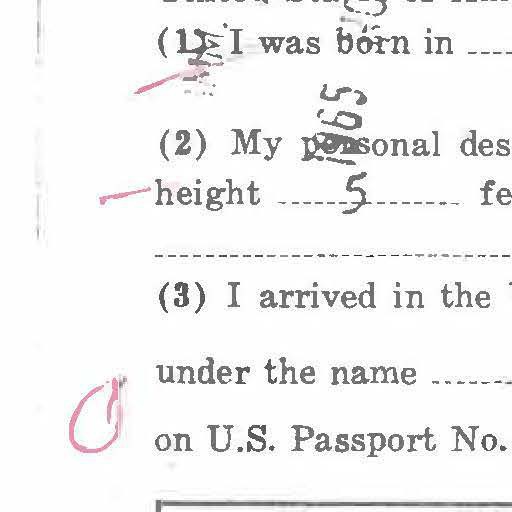 (1) I was born in
1965
(2) My personal des
height 5 fe
(3) I arrived in the
under the name
on U.S. Passport No.